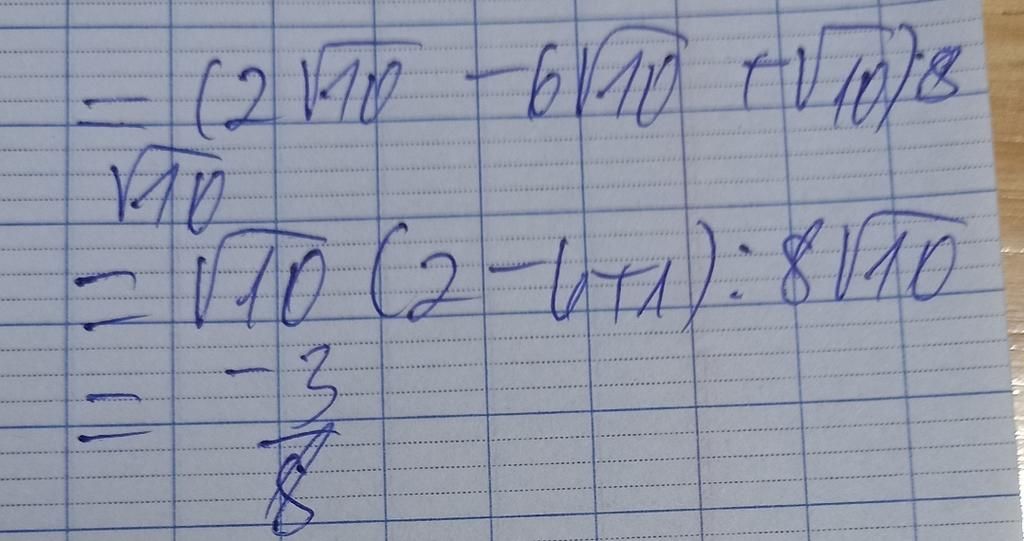 = (2√10 - 6√10 + √10):8
√10
= √10 (2 - 6 + 1) : 8√10
= -3/8